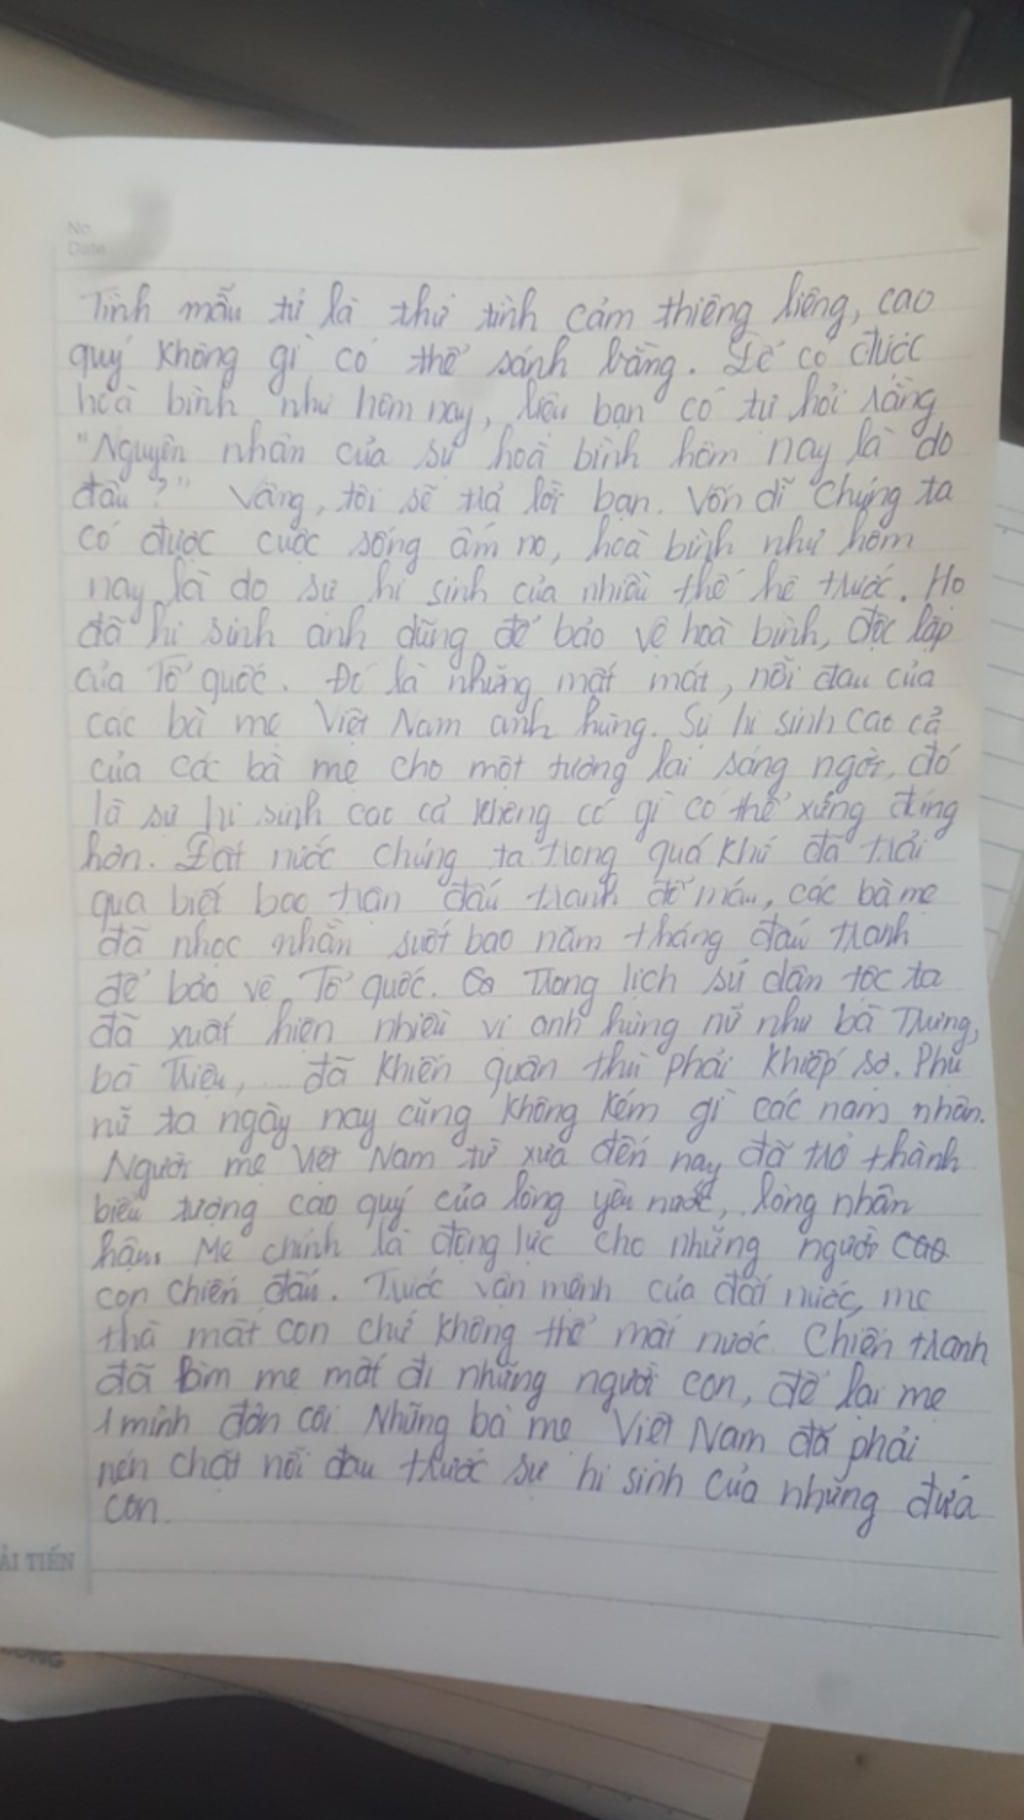 No.
Date
Tình mẫu tử là thứ tình cảm thiêng liêng, cao
quý không gì có thể sánh bằng. Để có được
hoà bình như hôm nay, liệu bạn có tự hỏi rằng
"Nguyên nhân của sự hoà bình hôm nay là do
đâu?" Vâng, tôi sẽ trả lời bạn. Vốn dĩ chúng ta
có được cuộc sống ấm no, hoà bình như hôm
nay là do sự hi sinh của nhiều thế hệ trước. Họ
đã hi sinh anh dũng để bảo vệ hoà bình, độc lập
của Tổ quốc. Đó là những mất mát, nỗi đau của
các bà mẹ Việt Nam anh hùng. Sự hi sinh cao cả
của các bà mẹ cho một tương lai sáng ngời, đó
là sự hi sinh cao cả không có gì có thể xứng đáng
hơn. Đất nước chúng ta trong quá khứ đã trải
qua biết bao trận đấu tranh đổ máu, các bà mẹ
đã nhọc nhằn suốt bao năm tháng đấu tranh
để bảo vệ Tổ quốc. Trong lịch sử dân tộc ta
đã xuất hiện nhiều vị anh hùng nữ như bà Trưng,
bà Triệu, ... đã khiến quân thù phải khiếp sợ. Phụ
nữ ta ngày nay cũng không kém gì các nam nhân.
Người mẹ Việt Nam từ xưa đến nay đã trở thành
biểu tượng cao quý của lòng yêu nước, lòng nhân
hậu. Mẹ chính là động lực cho những người
con chiến đấu. Trước vận mệnh của đất nước, mẹ
thà mất con chứ không thể mất nước. Chiến tranh
đã làm mẹ mất đi những người con, để lại mẹ
1 mình đơn côi. Những bà mẹ Việt Nam đã phải
nén chặt nỗi đau trước sự hi sinh của những đứa
con.
ẢI TIẾN